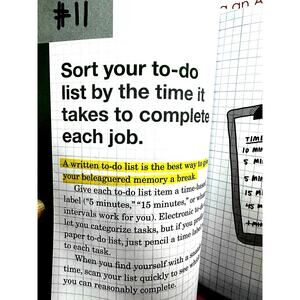 #11
Sort your to-do
list by the time it
takes to complete
each job.
A written to-do list is the best way to
your beleaguered memory a break.
Give each to-do list item a time-based
label ("5 minutes," "15 minutes," or
intervals work for you). Electronic
let you categorize tasks, but if you
paper to-do list, just pencil a time
to each task.
When you find yourself with a
time, scan your list quickly to see
you can reasonably complete.
an
TIME
10
5
5
15
45